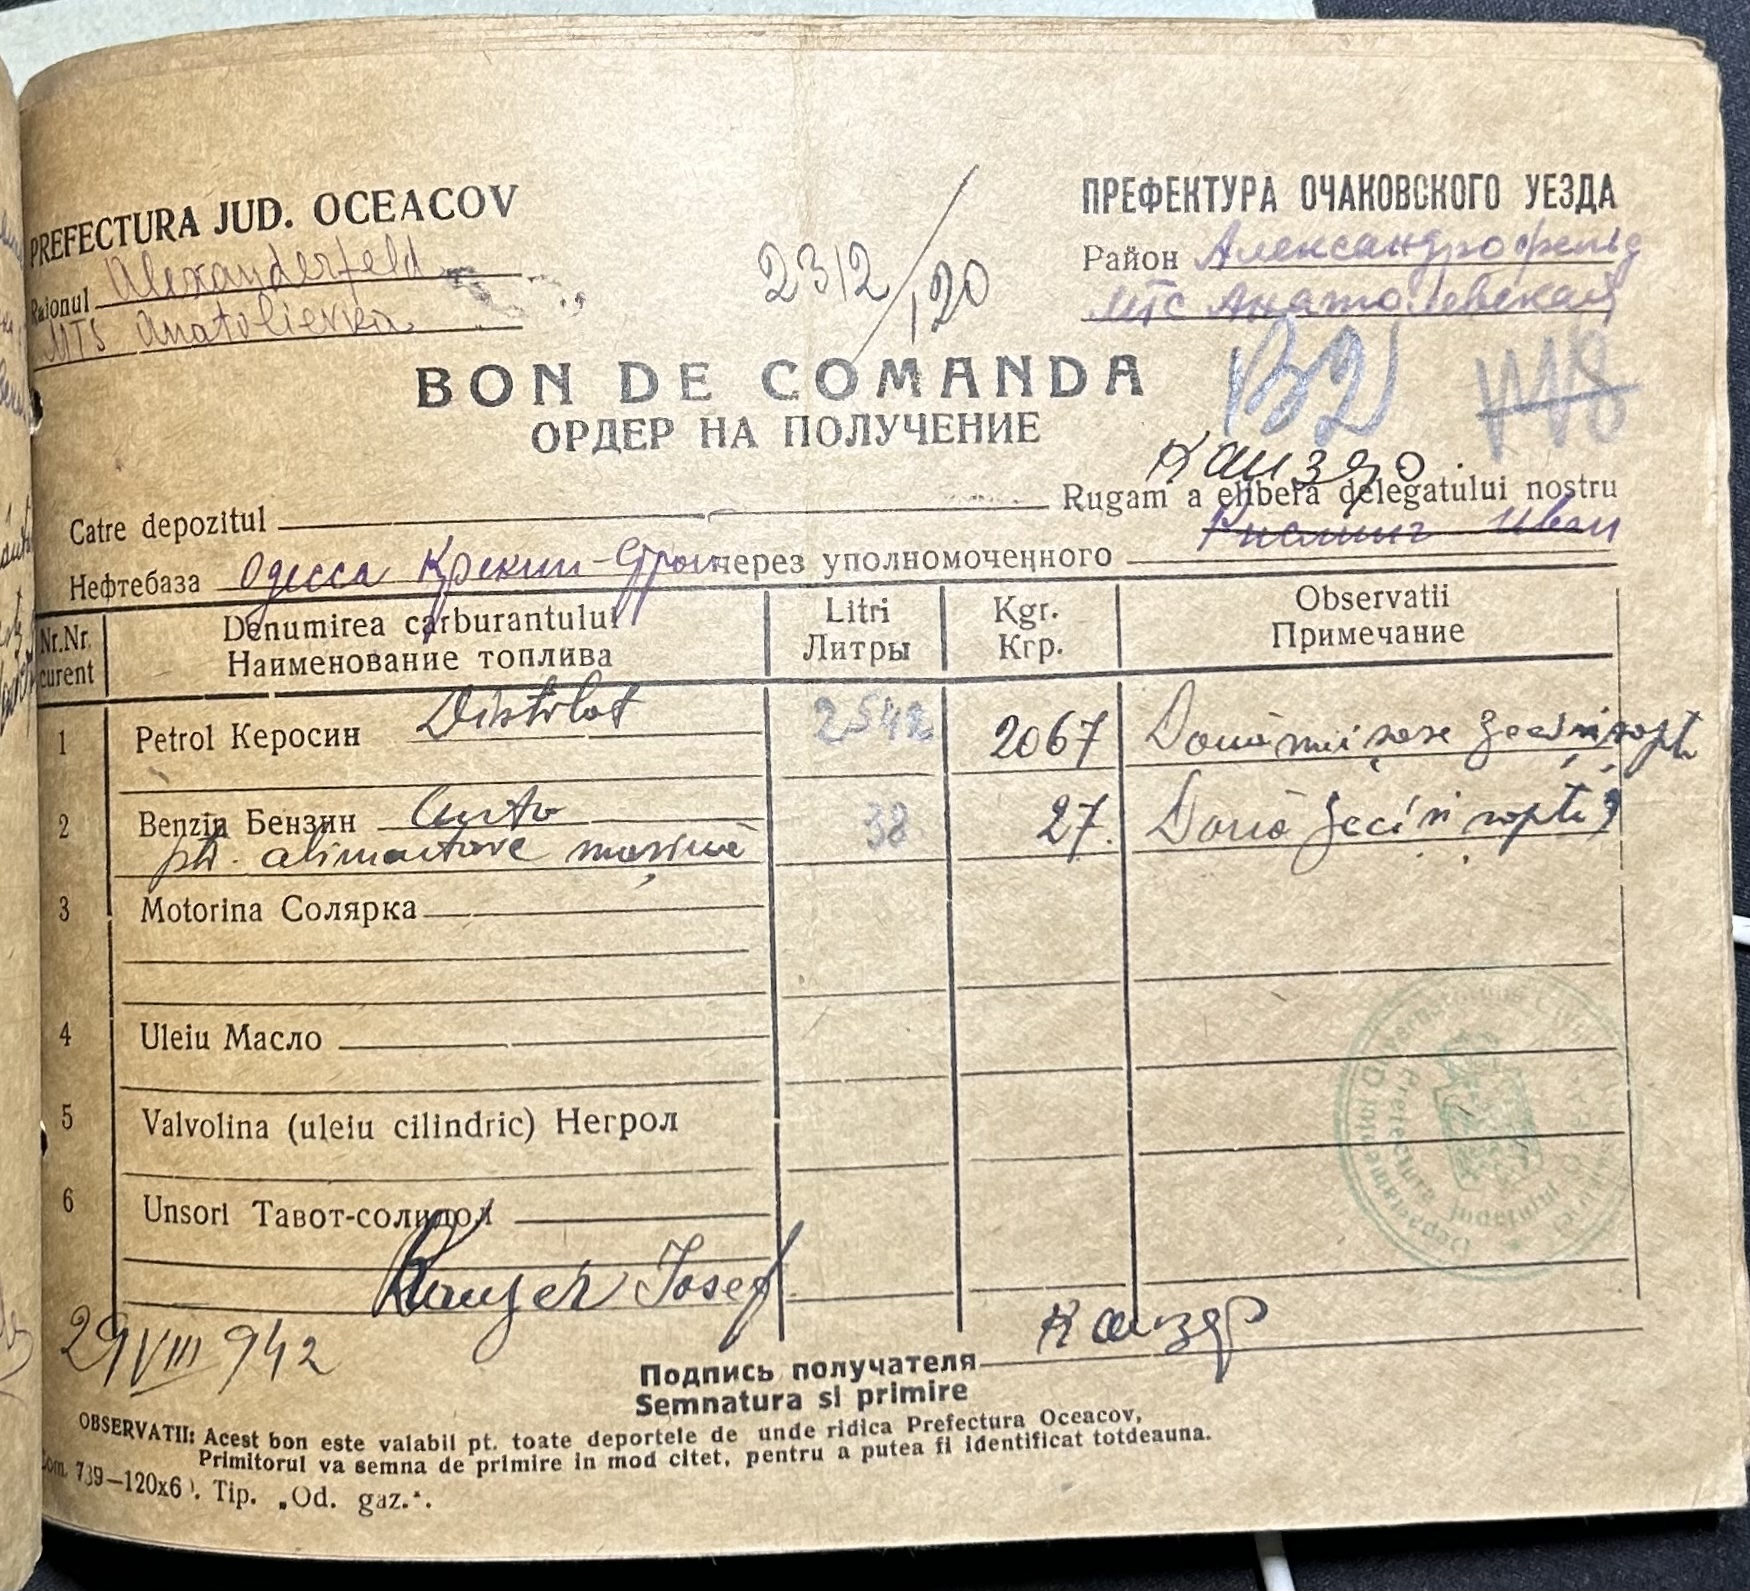 PREFECTURA JUD. OCEACOV
Raionul Alexanderfeld
MTS Anatolievka
2312/120
ПРЕФЕКТУРА ОЧАКОВСКОГО УЕЗДА
Район Александрофельд
МТС Анатолевская
BON DE COMANDA
ОРДЕР НА ПОЛУЧЕНИЕ
B2
Каизер
Catre depozitul Rugam a elibera delegatului nostru
Нефтебаза Одесса Крекин-Строи через уполномоченного Иван
Nr.Nr. curent
Denumirea carburantului
Наименование топлива
Litri
Литры
Kgr.
Кгр.
Observatii
Примечание
1 Petrol Керосин Distilat 2542 2067 Două mii șase zeci și șapte
2 Benzin Бензин Auto 38 27. Două zeci și șapte
ptr. alimentare mașină
3 Motorina Солярка
4 Uleiu Масло
5 Valvolina (uleiu cilindric) Негрол
6 Unsori Тавот-солидол
Josef
29 VIII 942
Подпись получателя Каизер
Semnatura si primire
OBSERVATII: Acest bon este valabil pt. toate deportele de unde ridica Prefectura Oceacov,
Primitorul va semna de primire in mod citet, pentru a putea fi identificat totdeauna.
Com. 739—120x6 . Tip. „Od. gaz.".
Prefectura Judetului